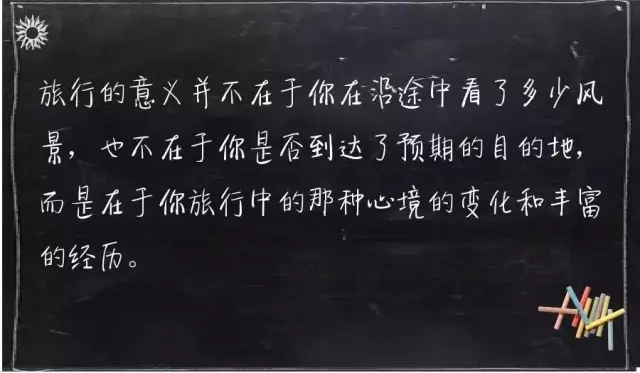 旅行的意义并不在于你在沿途中看了多少风
景，也不在于你是否到达了预期的目的地，
而是在于你旅行中的那种心境的变化和丰富
的经历。